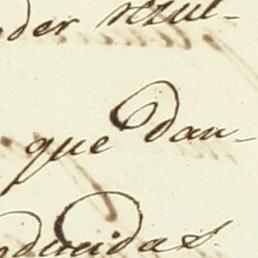 der rezul-
que Dan-
ducidas